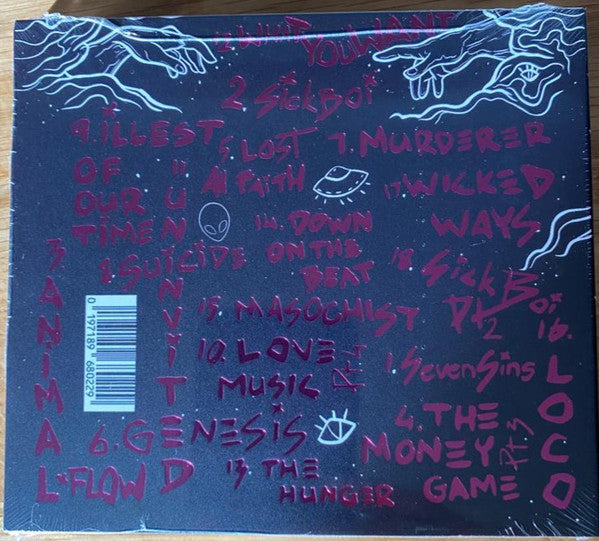 12 WHAT YOU WANT
2 SickBoi
9. iLLEST
OF
OUR
TiME
5. LOST
All FAITH
7. MURDERER
17 WICKED
WAYS
11 UNiNViTED
14. DOWN
ON THE
BEAT
8 SUiCiDE
18. Sick Boi
Pt 2
3 ANiMAL FLOW
15. MASOCHiST
16. LOCO
10. LOVE
MUSiC Pt 4
1. SevenSins
6. GENESiS
4. THE
MONEY Pt 3
GAME
13 THE
HUNGER
0 197189 680229